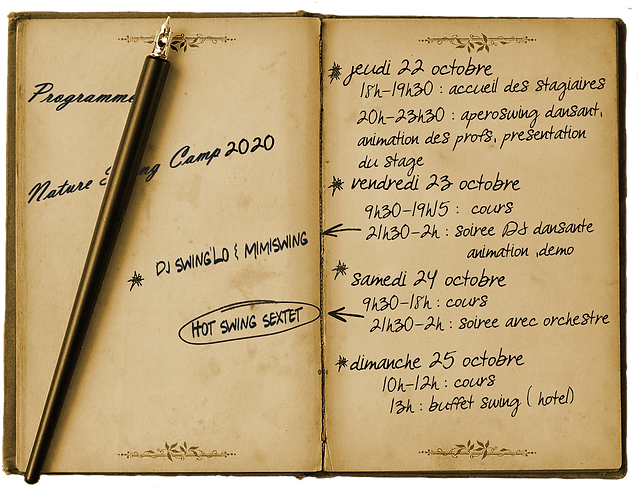 Programme
Nature Swing Camp 2020
DJ SWING'LO & MIMISWING
HOT SWING SEXTET
jeudi 22 octobre
18h-19h30 : accueil des stagiaires
20h-23h30 : aperoswing dansant,
animation des profs, presentation
du stage
vendredi 23 octobre
9h30-19h15 : cours
21h30-2h : soiree DJ dansante
animation ,demo
samedi 24 octobre
9h30-18h : cours
21h30-2h : soiree avec orchestre
dimanche 25 octobre
10h-12h : cours
13h : buffet swing ( hotel)